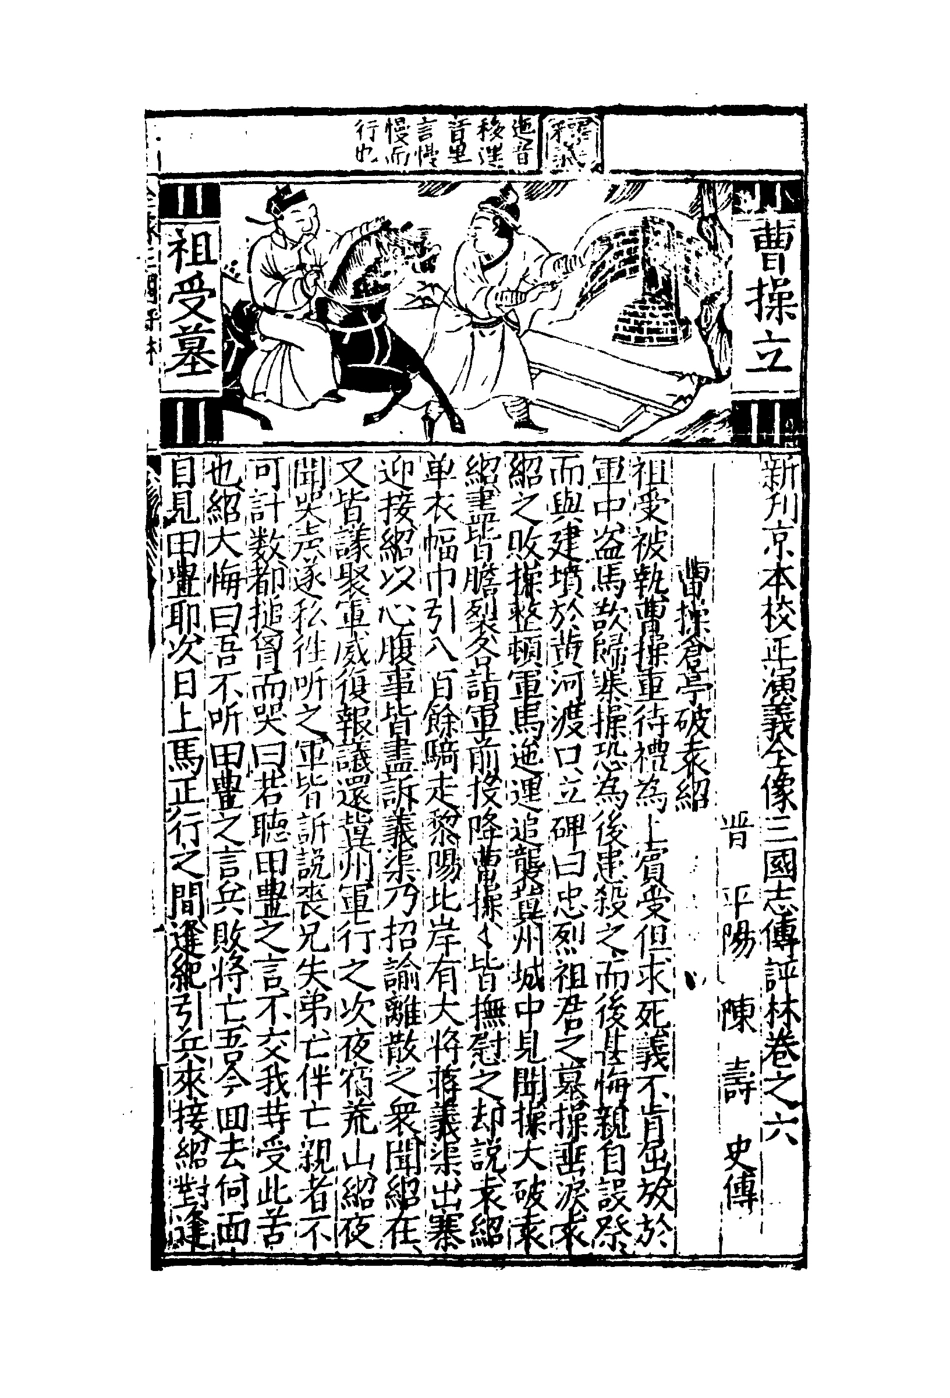 釋義
迤音
移邐
音里
言慢
慢而
行也
曹操立
祖受墓
新刋京本校正演義全像三國志傳評林卷之六
晋 平陽 陳 壽 史傳
曹操倉亭破袁紹
祖受被執曹操重待禮為上賓受但求死義不肯屈放於
軍中盗馬欲歸袁操恐為後患殺之而後甚悔親自設祭
而與建墳於黄河渡口立碑曰忠烈祖君之墓操垂淚哀
紹之敗操整頓軍馬迤運追襲冀州城中見聞操大破袁
紹書皆膽裂各詣軍前投降曹操〻皆撫慰之却說袁紹
单衣幅巾引八百餘騎走黎陽北岸有大将蒋義渠出寨
迎接紹以心腹事皆盡訴義渠乃招諭離散之衆聞紹在
又皆蟻聚軍威復報議還冀州軍行之次夜宿荒山紹夜
聞哭声遂私徃听之軍皆訴說喪兄失弟亡伴亡親者不
可計数都搥胷而哭曰若聴田豊之言不交我等受此苦
也紹大悔曰吾不听田豊之言兵敗將亡吾今回去何面
目見田豊耶次日上馬正行之間逢紀引兵來接紹對逢